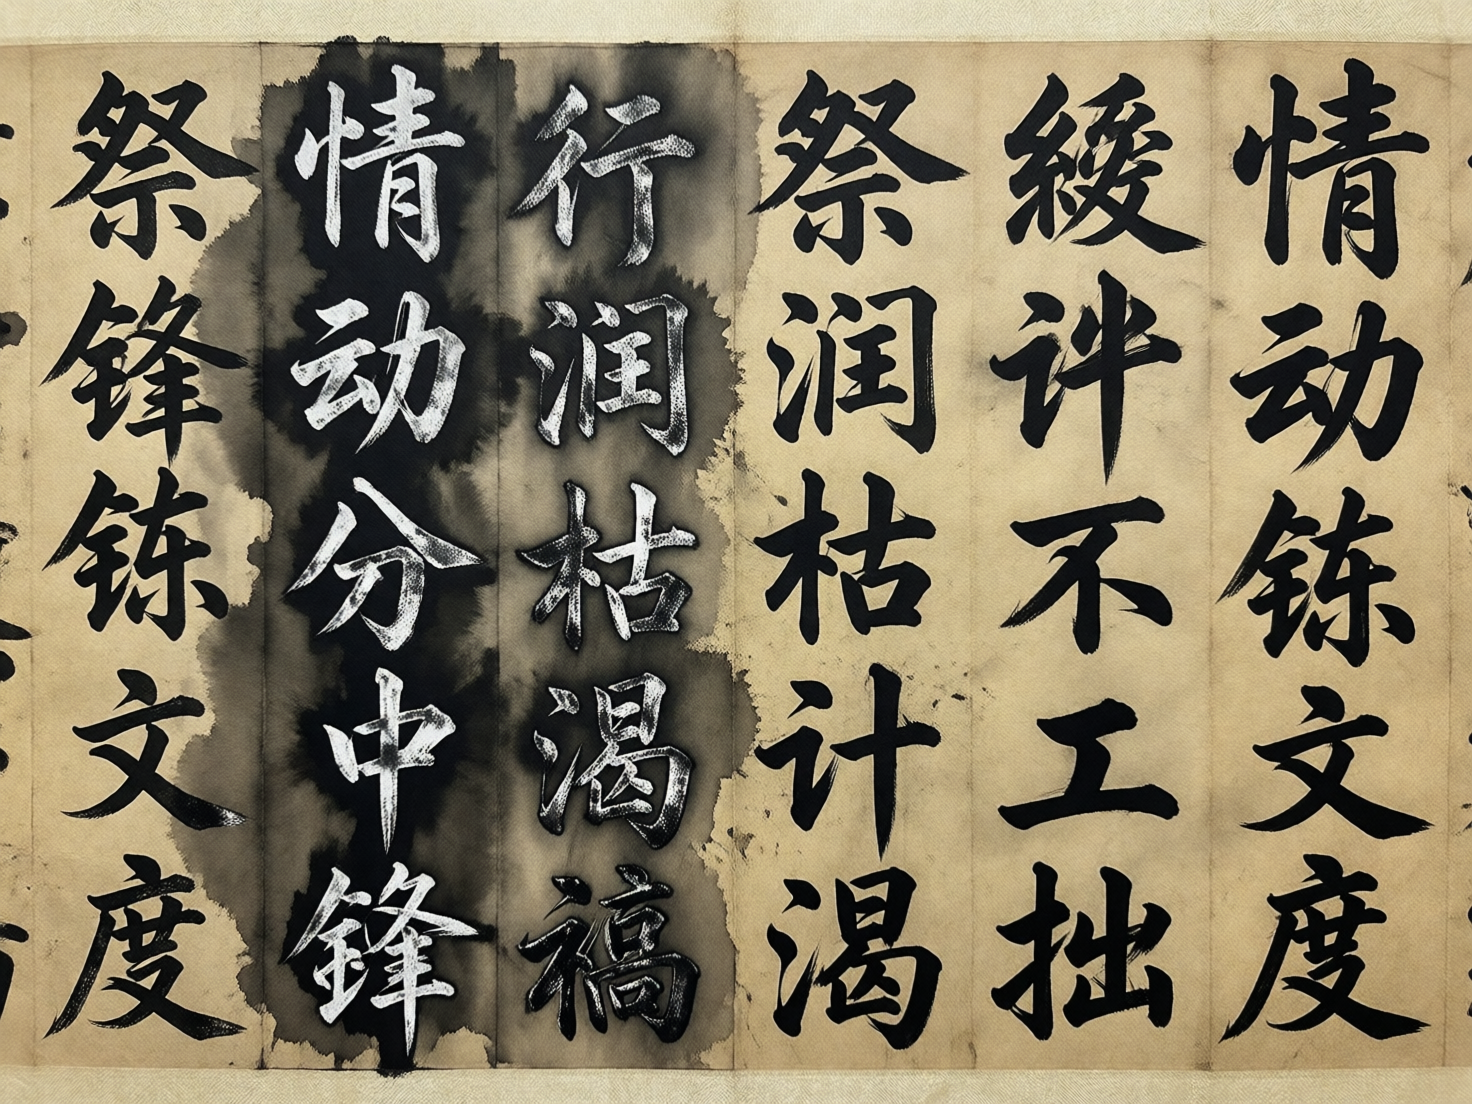 情动文度
不工拙
祭润枯计渴
行润枯渴
情动分中鋒
祭锋文度